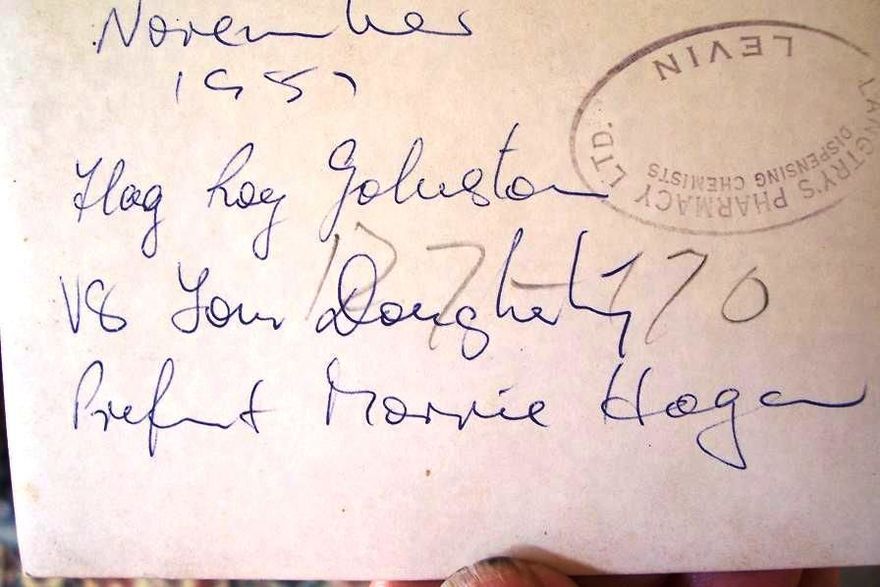 November
1957
Flag Roy Johnston
V8 Tom Dougherty
Prefect Morrie Hogan
LEVIN
LANGTRY'S PHARMACY LTD.
DISPENSING CHEMISTS